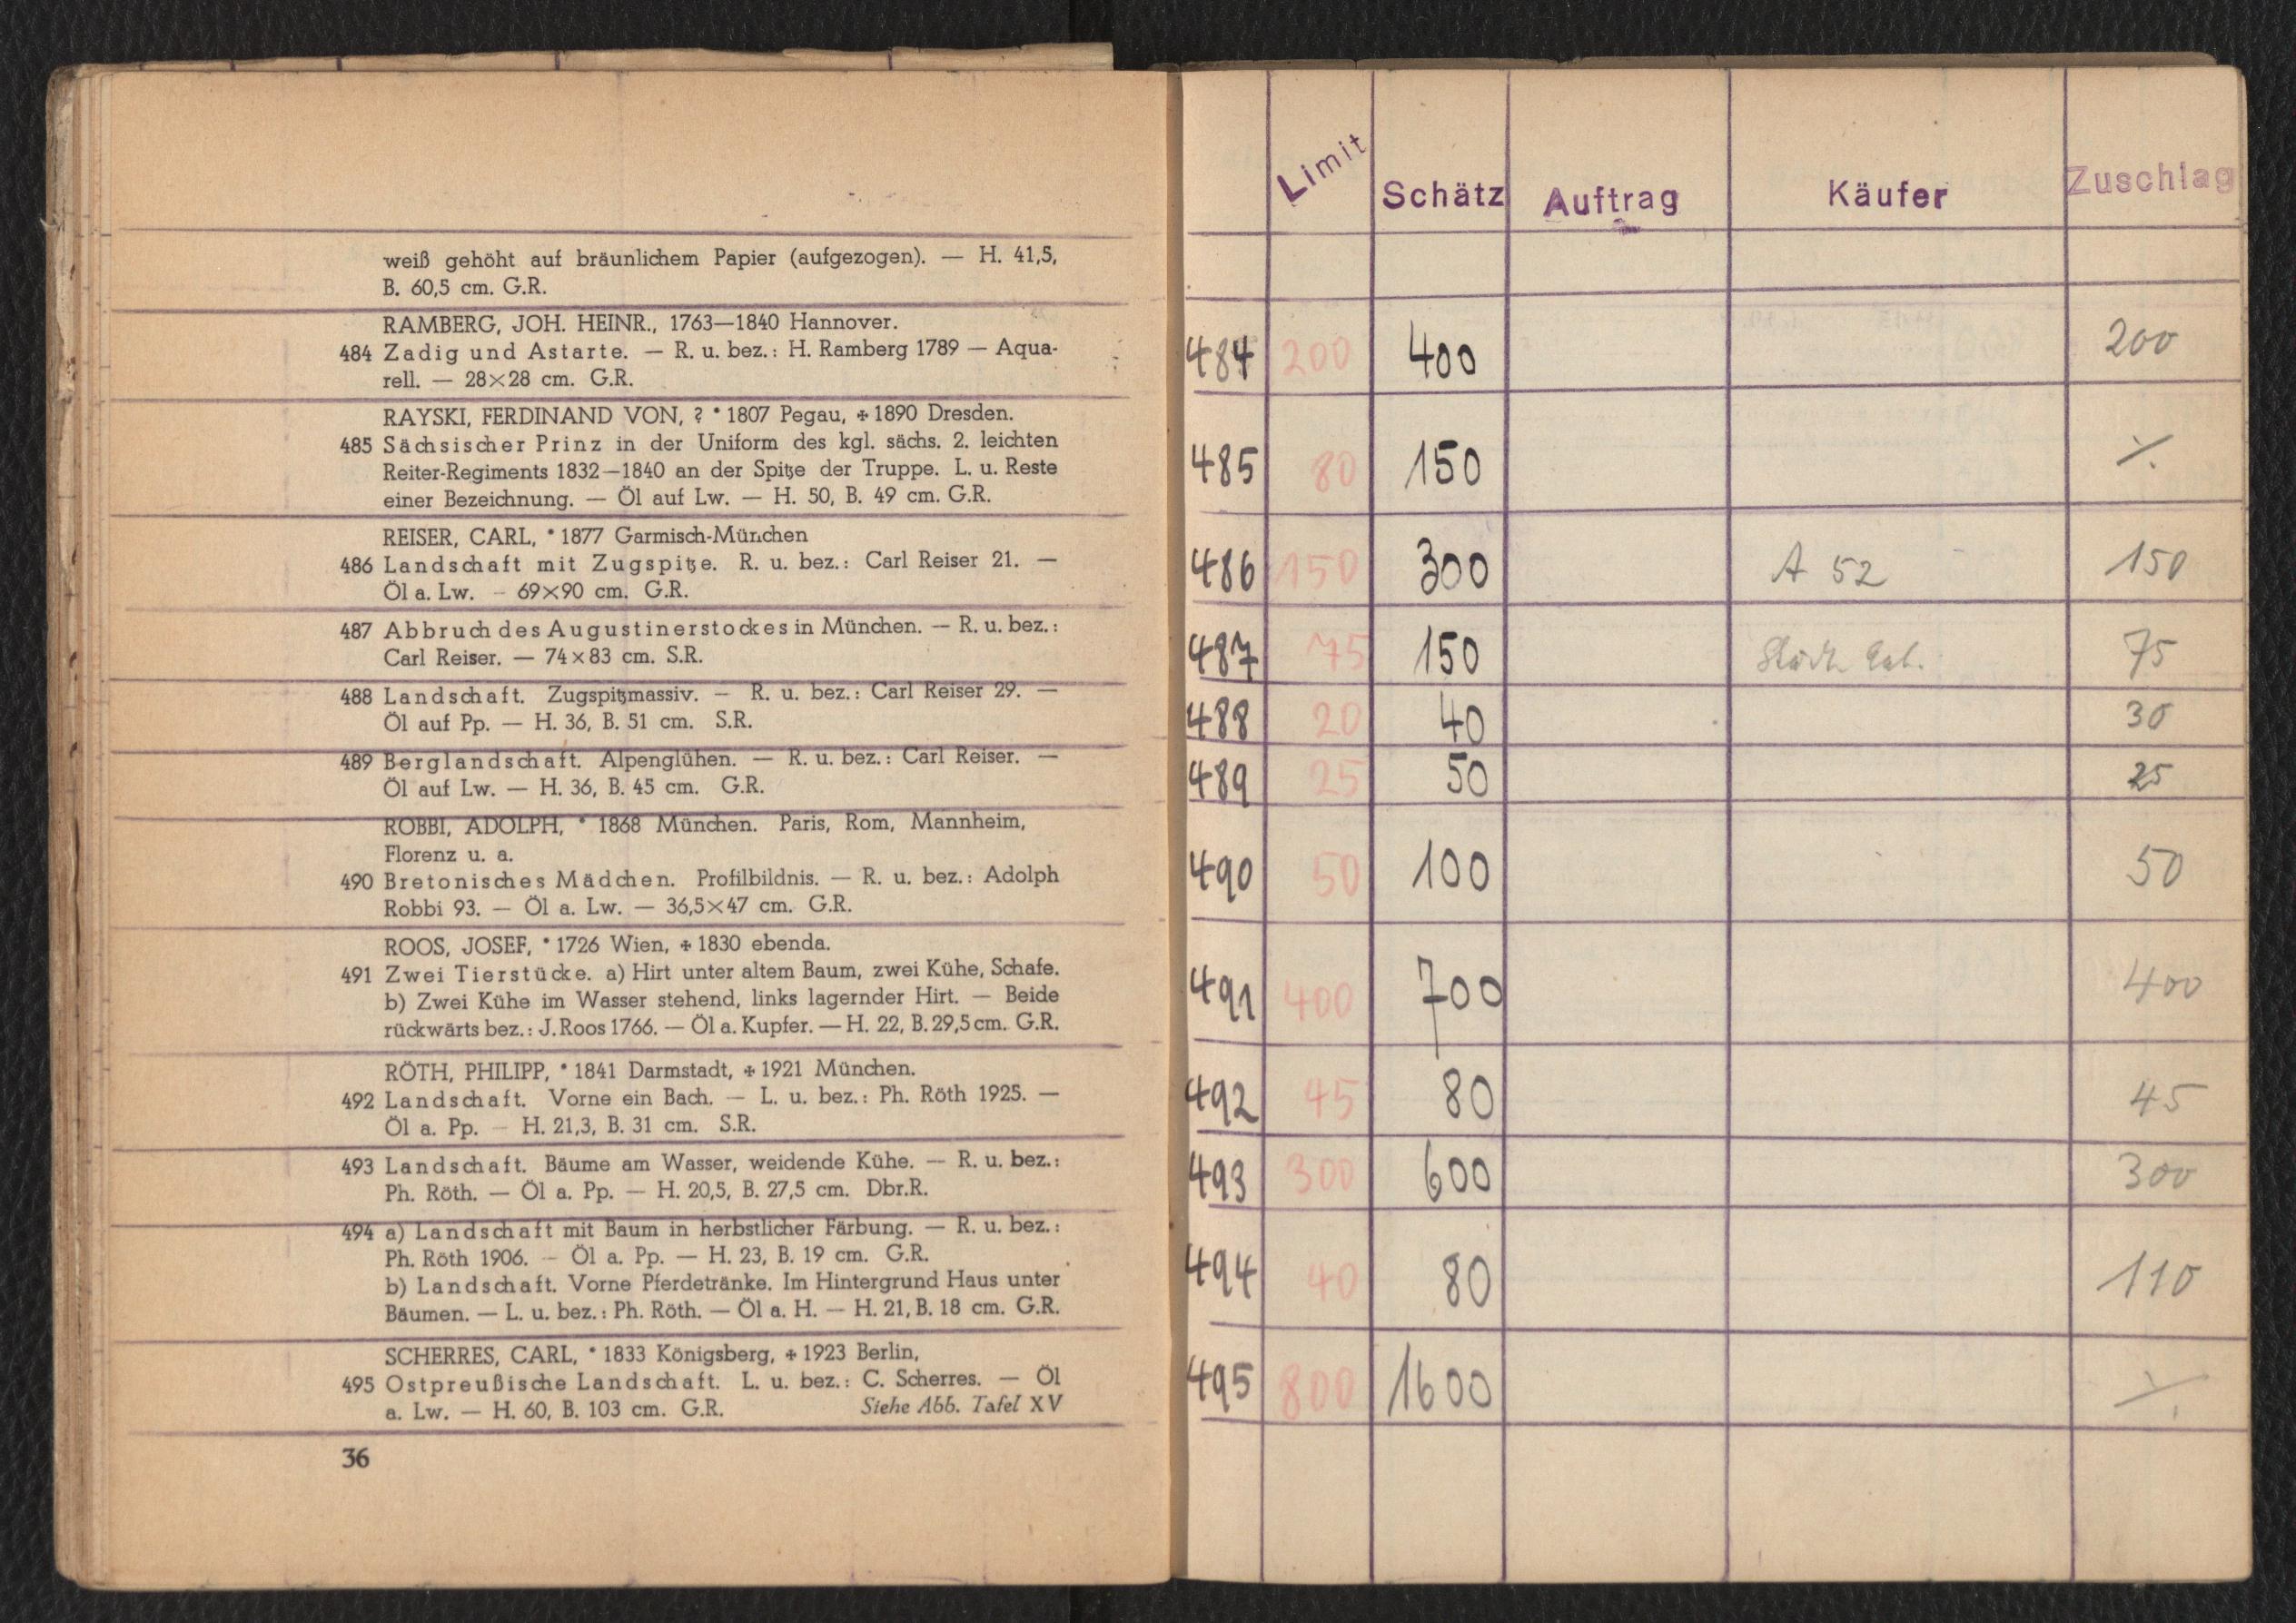 weiß gehöht auf bräunlichem Papier (aufgezogen). — H. 41,5,
B. 60,5 cm. G.R.
RAMBERG, JOH. HEINR., 1763—1840 Hannover.
484 Zadig und Astarte. — R. u. bez.: H. Ramberg 1789 — Aqua-
rell. — 28×28 cm. G.R.
RAYSKI, FERDINAND VON, ? * 1807 Pegau, ✠ 1890 Dresden.
485 Sächsischer Prinz in der Uniform des kgl. sächs. 2. leichten
Reiter-Regiments 1832—1840 an der Spitze der Truppe. L. u. Reste
einer Bezeichnung. — Öl auf Lw. — H. 50, B. 49 cm. G.R.
REISER, CARL, * 1877 Garmisch-München
486 Landschaft mit Zugspitze. R. u. bez.: Carl Reiser 21. —
Öl a. Lw. — 69×90 cm. G.R.
487 Abbruch des Augustinerstockes in München. — R. u. bez.:
Carl Reiser. — 74×83 cm. S.R.
488 Landschaft. Zugspitzmassiv. — R. u. bez.: Carl Reiser 29. —
Öl auf Pp. — H. 36, B. 51 cm. S.R.
489 Berglandschaft. Alpenglühen. — R. u. bez.: Carl Reiser. —
Öl auf Lw. — H. 36, B. 45 cm. G.R.
ROBBI, ADOLPH, * 1868 München. Paris, Rom, Mannheim,
Florenz u. a.
490 Bretonisches Mädchen. Profilbildnis. — R. u. bez.: Adolph
Robbi 93. — Öl a. Lw. — 36,5×47 cm. G.R.
ROOS, JOSEF, * 1726 Wien, ✠ 1830 ebenda.
491 Zwei Tierstücke. a) Hirt unter altem Baum, zwei Kühe, Schafe.
b) Zwei Kühe im Wasser stehend, links lagernder Hirt. — Beide
rückwärts bez.: J. Roos 1766. — Öl a. Kupfer. — H. 22, B. 29,5 cm. G.R.
RÖTH, PHILIPP, * 1841 Darmstadt, ✠ 1921 München.
492 Landschaft. Vorne ein Bach. — L. u. bez.: Ph. Röth 1925. —
Öl a. Pp. — H. 21,3, B. 31 cm. S.R.
493 Landschaft. Bäume am Wasser, weidende Kühe. — R. u. bez.:
Ph. Röth. — Öl a. Pp. — H. 20,5, B. 27,5 cm. Dbr.R.
494 a) Landschaft mit Baum in herbstlicher Färbung. — R. u. bez.:
Ph. Röth 1906. — Öl a. Pp. — H. 23, B. 19 cm. G.R.
b) Landschaft. Vorne Pferdetränke. Im Hintergrund Haus unter
Bäumen. — L. u. bez.: Ph. Röth. — Öl a. H. — H. 21, B. 18 cm. G.R.
SCHERRES, CARL, * 1833 Königsberg, ✠ 1923 Berlin,
495 Ostpreußische Landschaft. L. u. bez.: C. Scherres. — Öl
a. Lw. — H. 60, B. 103 cm. G.R. Siehe Abb. Tafel XV
36
Limit Schätz Auftrag Käufer Zuschlag
484 200 400 200
485 80 150 ⁒
486 150 300 A 52 150
487 75 150 75
488 20 40 30
489 25 50 25
490 50 100 50
491 400 700 400
492 45 80 45
493 300 600 300
494 40 80 110
495 800 1600 ⁒